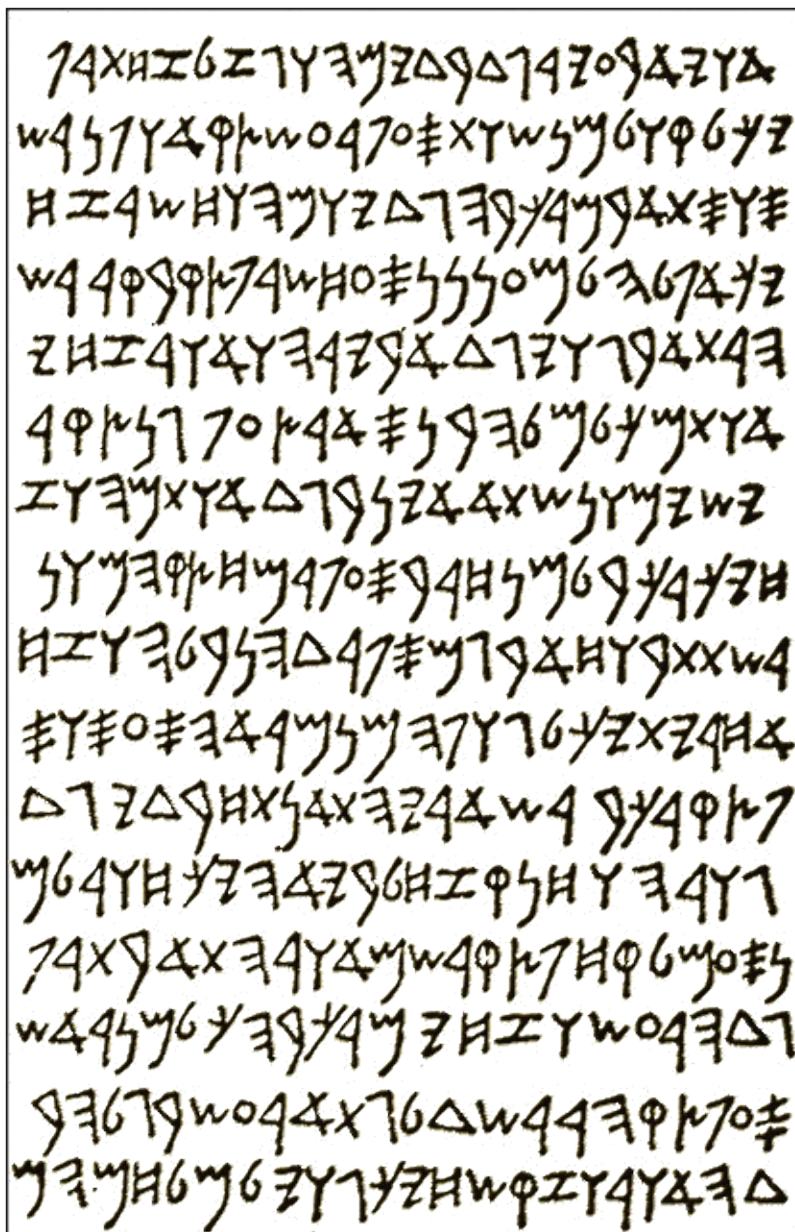 𐤀𐤅𐤉𐤀𐤁𐤏𐤉𐤓𐤂𐤃𐤁𐤃𐤉𐤌𐤄𐤅𐤂𐤆𐤋𐤆𐤇𐤕𐤓𐤐
𐤉𐤊𐤋𐤒𐤅𐤋𐤌𐤍𐤔𐤅𐤕𐤎𐤏𐤐𐤓𐤏𐤔𐤑𐤒𐤀𐤅𐤐𐤍𐤓𐤔
𐤎𐤅𐤎𐤕𐤀𐤁𐤌𐤓𐤊𐤁𐤄𐤂𐤃𐤉𐤅𐤌𐤄𐤅𐤇𐤔𐤓𐤆𐤇
𐤉𐤊𐤀𐤐𐤋𐤄𐤋𐤌𐤏𐤍𐤍𐤍𐤎𐤏𐤇𐤔𐤓𐤐𐤑𐤒𐤁𐤒𐤓𐤓𐤔
𐤄𐤓𐤕𐤀𐤁𐤂𐤅𐤉𐤂𐤃𐤀𐤁𐤉𐤓𐤄𐤅𐤀𐤅𐤓𐤆𐤇𐤉
𐤀𐤅𐤕𐤌𐤊𐤋𐤌𐤋𐤄𐤁𐤍𐤎𐤀𐤓𐤑𐤏𐤐𐤂𐤍𐤑𐤒𐤓
𐤉𐤔𐤉𐤌𐤅𐤍𐤔𐤕𐤀𐤀𐤉𐤍𐤁𐤂𐤃𐤀𐤅𐤕𐤌𐤄𐤅𐤆
𐤇𐤉𐤊𐤓𐤊𐤁𐤋𐤌𐤍𐤇𐤓𐤁𐤎𐤏𐤐𐤓𐤌𐤇𐤑𐤒𐤄𐤌𐤅𐤍
𐤓𐤔𐤕𐤕𐤁𐤅𐤇𐤀𐤁𐤂𐤌𐤎𐤐𐤓𐤃𐤄𐤍𐤁𐤋𐤄𐤅𐤆𐤇
𐤀𐤇𐤓𐤉𐤕𐤉𐤊𐤋𐤂𐤅𐤐𐤄𐤌𐤍𐤌𐤓𐤀𐤄𐤎𐤏𐤎𐤅𐤎
𐤐𐤑𐤒𐤓𐤊𐤁 𐤓𐤔𐤀𐤓𐤉𐤄𐤕𐤀𐤍𐤕𐤇𐤁𐤃𐤉𐤂𐤃
𐤂𐤅𐤓𐤄𐤅𐤇𐤍𐤒𐤆𐤇𐤋𐤁𐤉𐤀𐤄𐤉𐤊𐤇𐤅𐤓𐤋𐤌
𐤍𐤎𐤏𐤌𐤋𐤒𐤇𐤐𐤑𐤒𐤓𐤔𐤌𐤀𐤅𐤓𐤄𐤕𐤀𐤁𐤕𐤓𐤐
𐤂𐤃𐤄𐤓𐤏𐤔𐤅𐤆𐤇𐤉𐤌𐤓𐤊𐤁𐤄𐤊𐤋𐤌𐤍𐤓𐤀𐤔
𐤎𐤏𐤐𐤑𐤒𐤄𐤓𐤓𐤔𐤃𐤋𐤂𐤕𐤀𐤓𐤏𐤔𐤁𐤂𐤋𐤄𐤁
𐤃𐤄𐤀𐤅𐤓𐤅𐤆𐤒𐤔𐤇𐤉𐤊𐤂𐤅𐤉𐤋𐤌𐤋𐤇𐤌𐤄𐤌